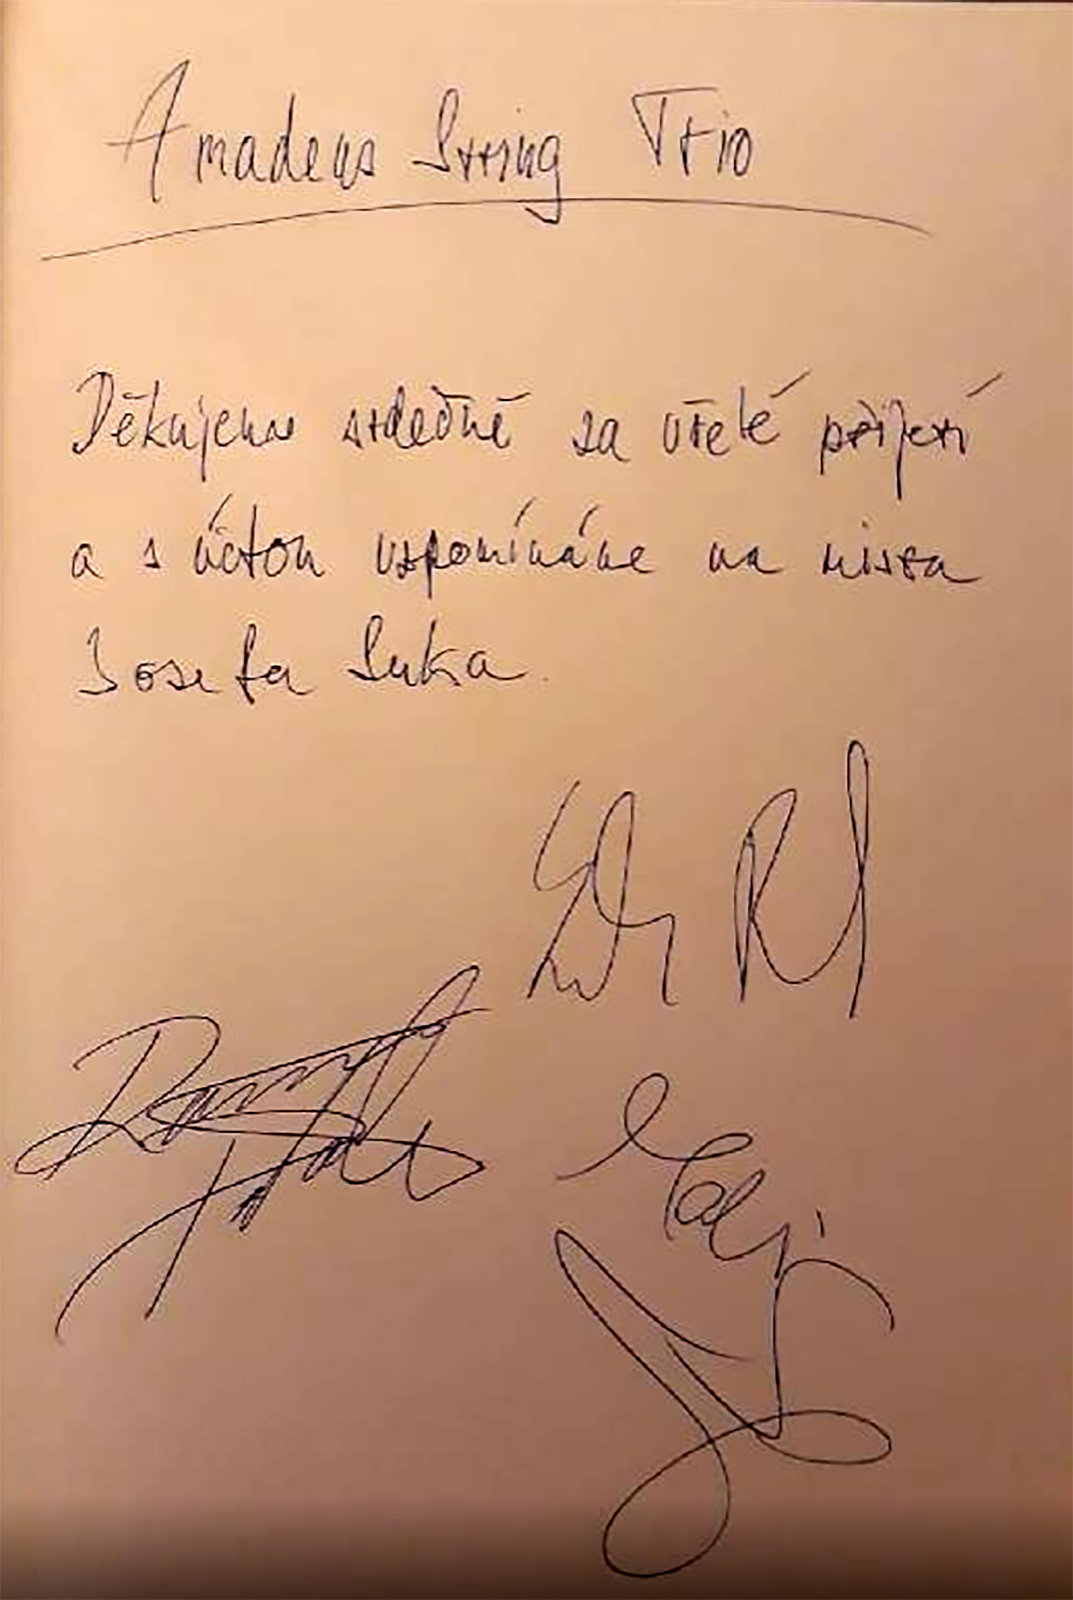 Amadeus String Trio
Děkujeme srdečně za vřelé přijetí
a s úctou vzpomínáme na mistra
Josefa Suka.